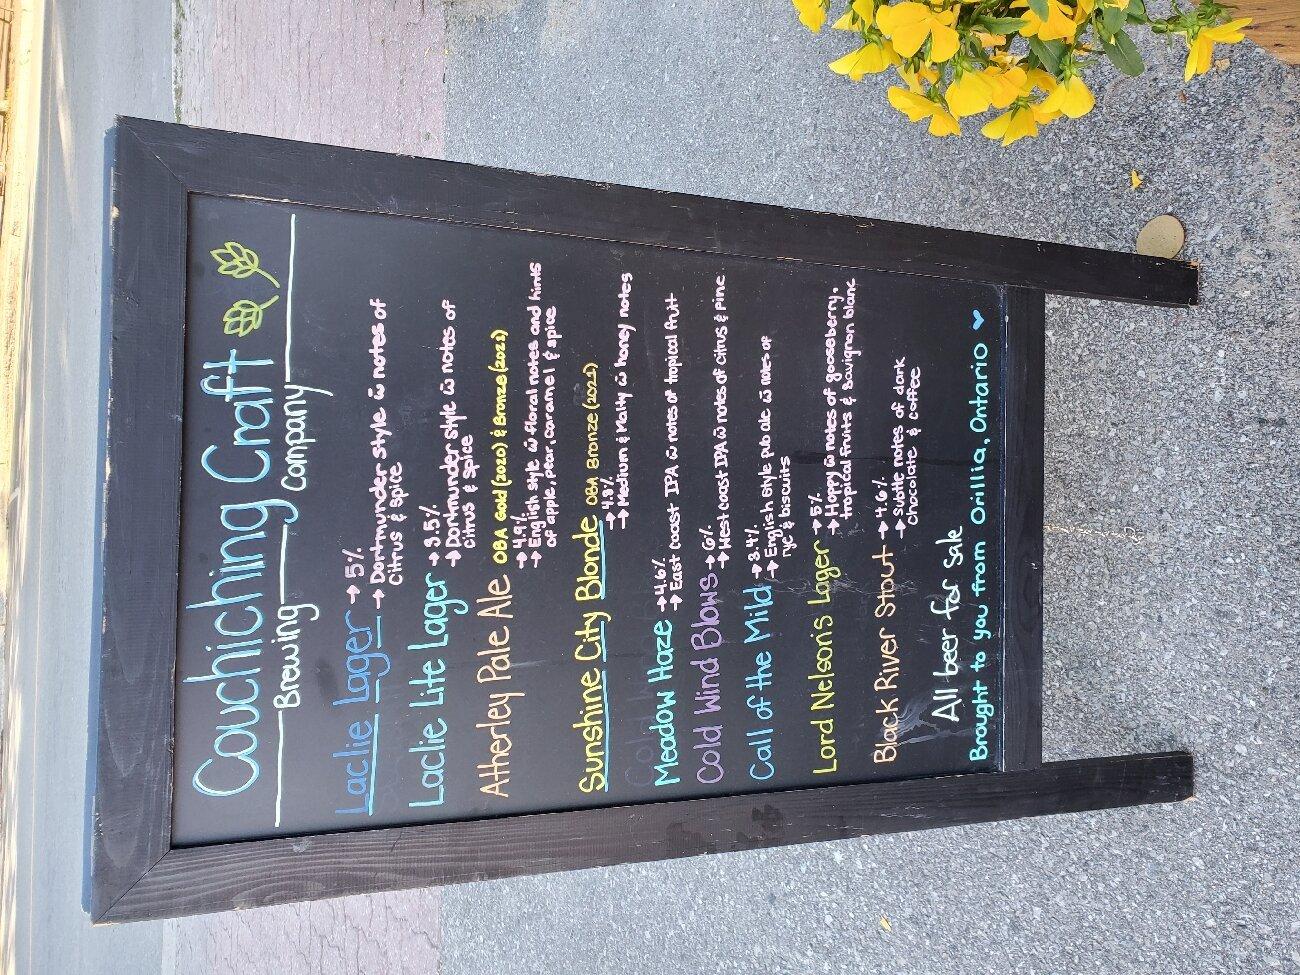 Couchiching Craft
Brewing Company
Laclie Lager → 5%
→ Dortmunder style w̄ notes of
citrus & spice
Laclie Lite Lager → 3.5%
→ Dortmunder style w̄ notes of
citrus & spice
Atherley Pale Ale OBA Gold (2020) & Bronze (2021)
→ 4.9%
→ English style w̄ floral notes and hints
of apple, pear, caramel & spice
Sunshine City Blonde OBA Bronze (2021)
→ 4.8%
→ Medium & Malty w̄ honey notes
Meadow Haze → 4.6%
→ East coast IPA w̄ notes of tropical fruit
Cold Wind Blows → 6%
→ West coast IPA w̄ notes of citrus & pine
Call of the Mild → 3.4%
→ English style pub ale w̄ notes of
rye & biscuits
Lord Nelson's Lager → 5%
→ Hoppy w̄ notes of gooseberry,
tropical fruits & Sauvignon blanc
Black River Stout → 4.6%
→ Subtle notes of dark
chocolate & coffee
All beer for Sale
Brought to you from Orillia, Ontario ♥